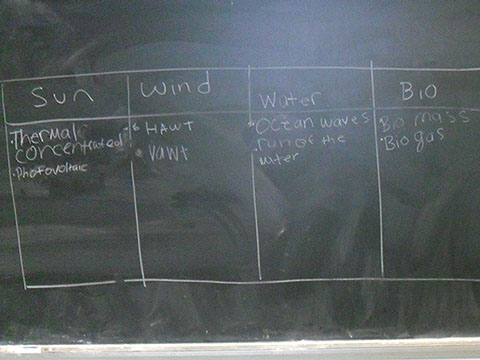 Sun
Wind
Water
BIO
•Thermal
concentrated
•Photovoltaic
• HAWT
• VAWT
•Ocean waves
•run of the
water
Bio mass
•Bio gas